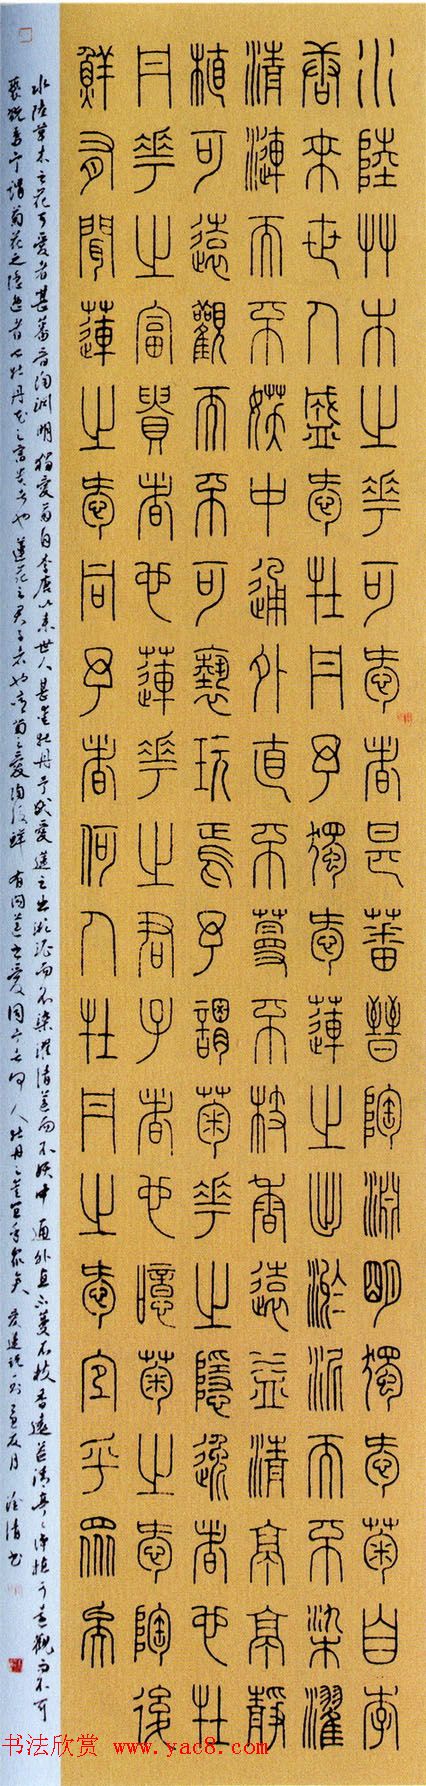 水陸艸木之華可愛者甚蕃晉陶淵明獨愛菊自李
唐來世人盛愛牡丹予獨愛蓮之出淤泥而不染濯
清漣而不妖中通外直不蔓不枝香遠益清亭亭靜
植可遠觀而不可褻玩焉予謂菊華之隱逸者也牡
丹華之富貴者也蓮華之君子者也噫菊之愛陶後
鮮有聞蓮之愛同予者何人牡丹之愛宜乎眾矣
水陸草木之花可愛者甚蕃晉陶淵明獨愛菊自李唐以來世人甚愛牡丹予獨愛蓮之出淤泥而不染濯清蓮而不妖中通外直不蔓不枝香遠益清亭亭淨植可遠觀而不可
褻玩焉予謂菊花之隱逸者也牡丹花之富貴者也蓮花之君子者也噫菊之愛陶後鮮有聞蓮之愛同予者何人牡丹之愛宜乎眾矣愛蓮說一則
书法欣赏 www.yac8.com